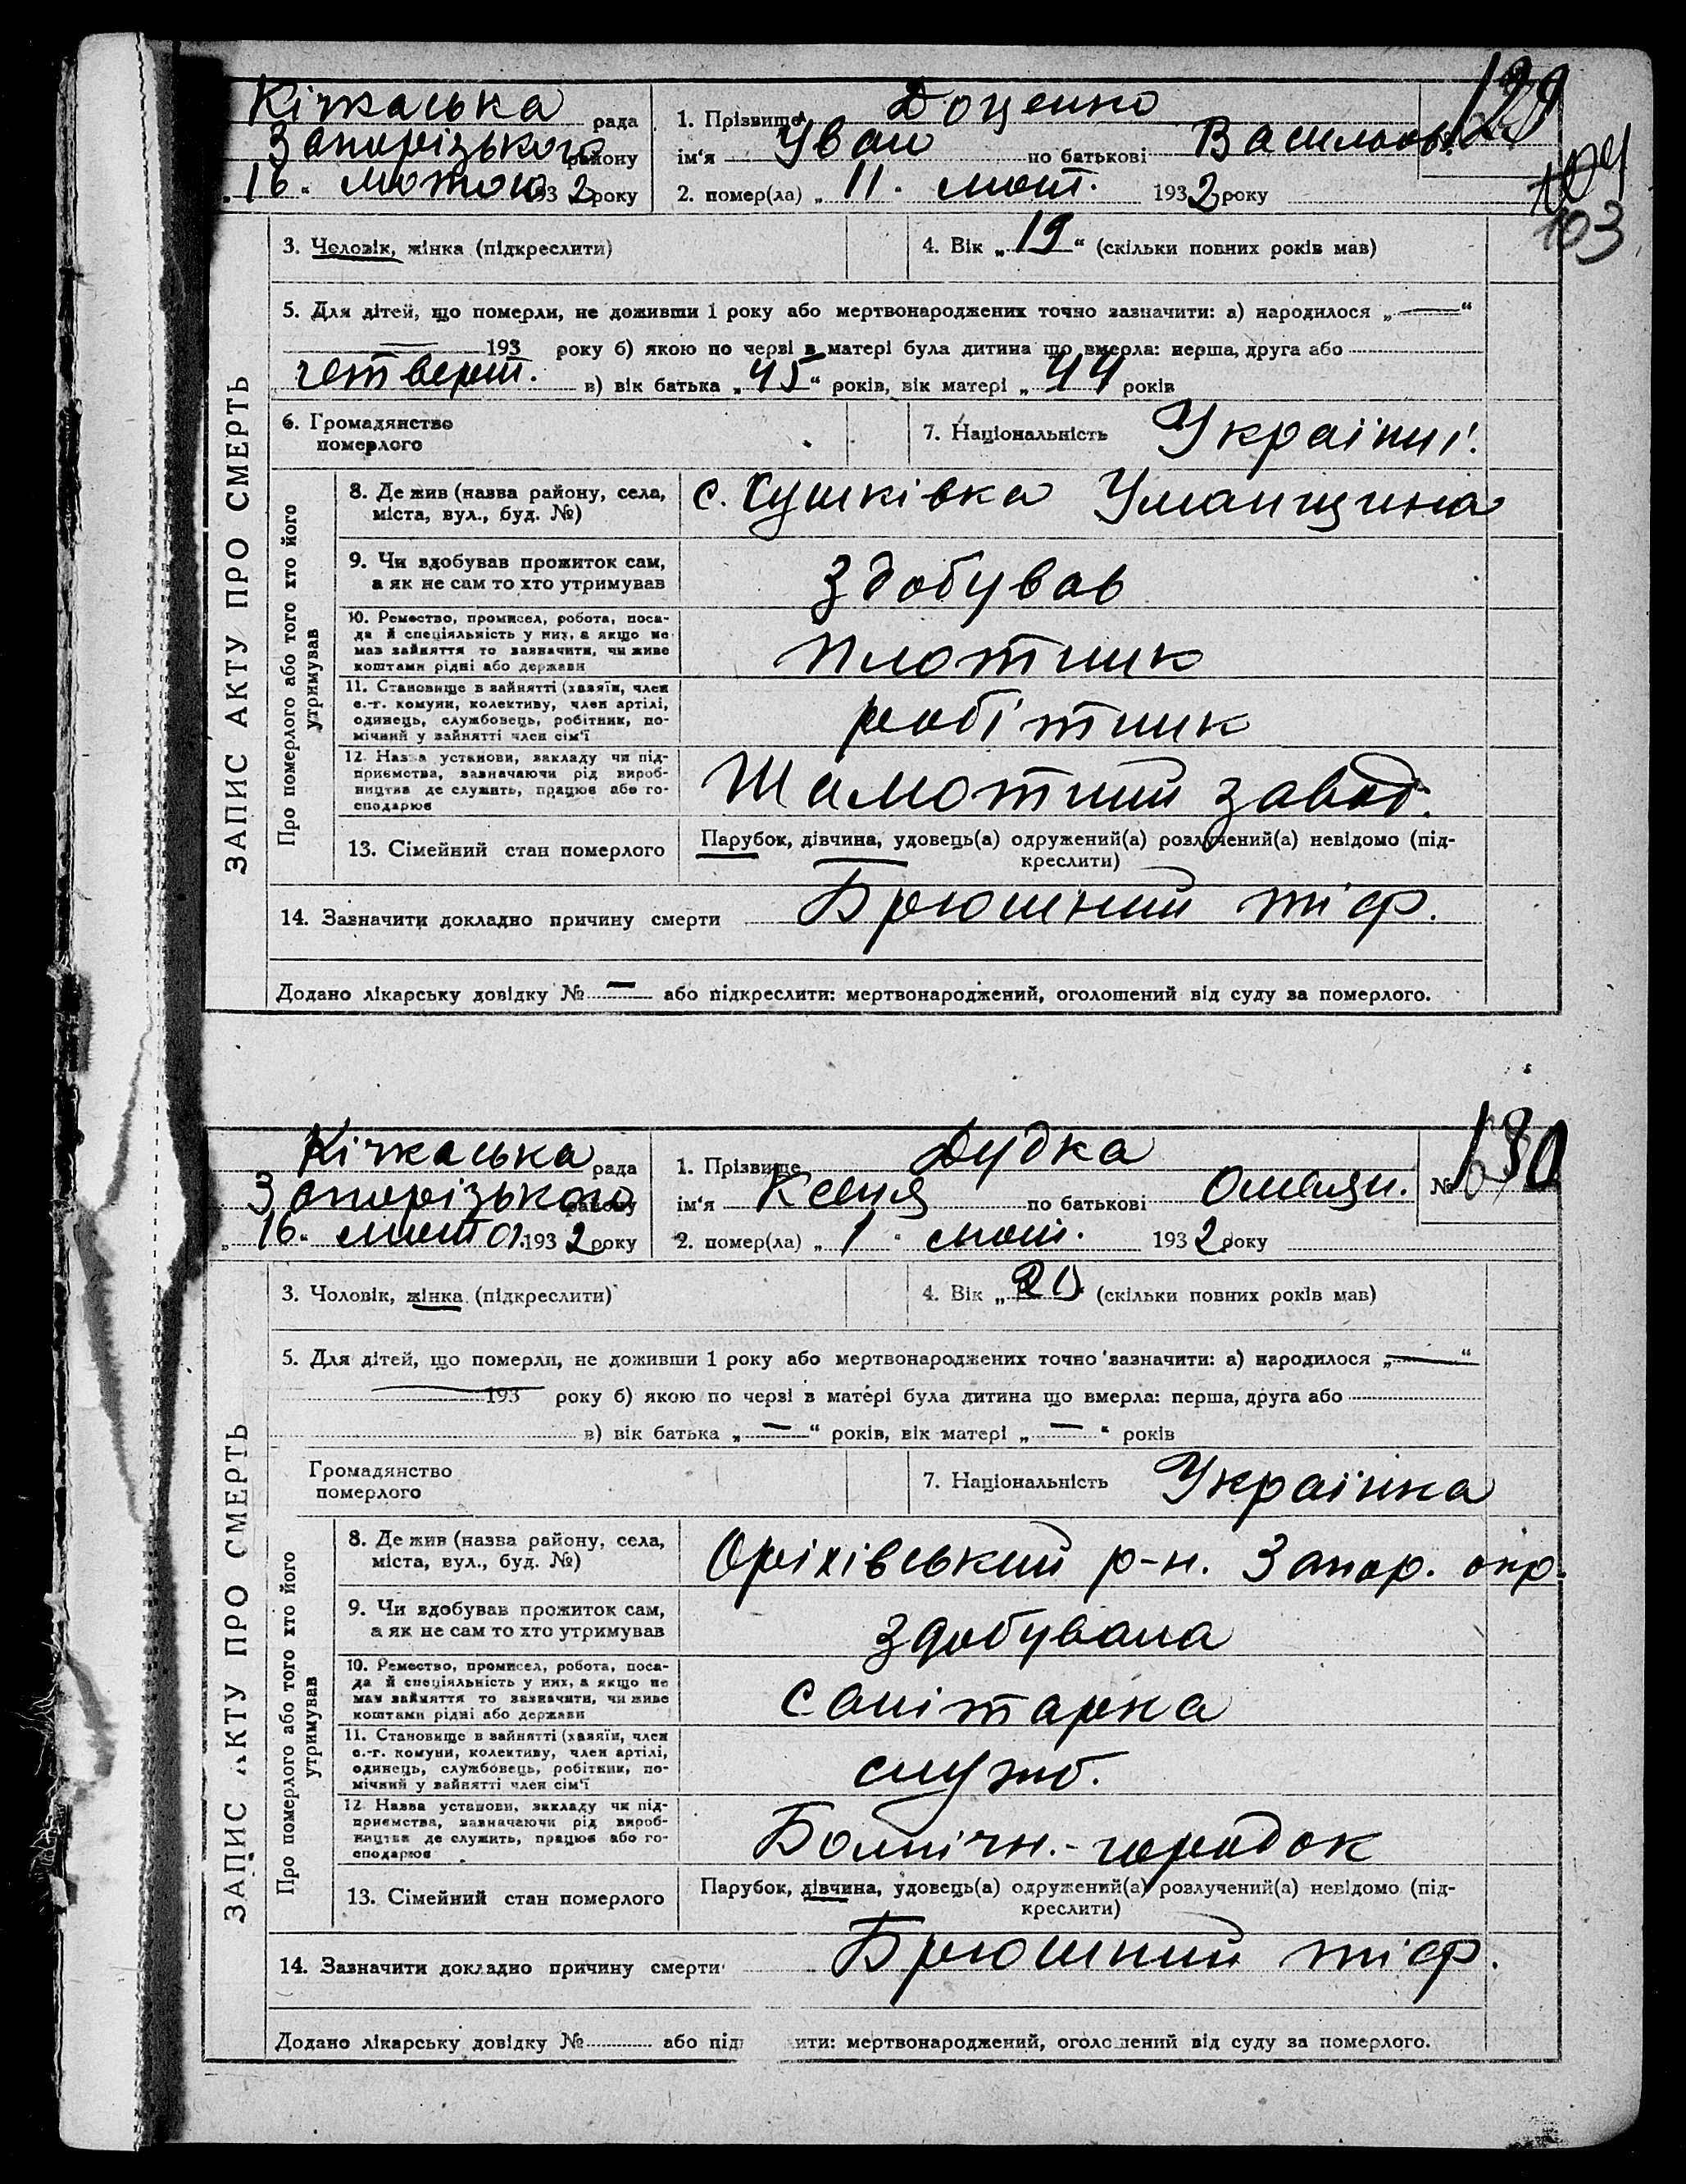 129
Кічкаська рада
Запорізького району
16 лютого 1932 року
1. Прізвище Доценко
ім'я Іван по батькові Васильов.
2. помер(ла) „ 11 . лют. 1932 року
104
103
ЗАПИС АКТУ ПРО СМЕРТЬ
3. Чоловік, жінка (підкреслити)
4. Вік „ 19 “ (скільки повних років мав)
5. Для дітей, що померли, не доживши 1 року або мертвонароджених точно зазначити: а) народилося „ — “
— 193 року б) якою по черзі в матері була дитина що вмерла: перша, друга або
четверт. в) вік батька „ 45 “ років, вік матері „ 44 років
6. Громадянство
померлого
7. Національність Україн.
Про померлого або того хто його
утримував
8. Де жив (назва району, села,
міста, вул., буд. №)
с. Сушківка Уманщина
9. Чи здобував прожиток сам,
а як не сам то хто утримував
здобував
10. Ремество, промисел, робота, поса-
да й спеціяльність у них, а якщо не
мав зайняття то зазначити, чи живе
коштами рідні або держави
плотник
11. Становище в зайнятті (хазяїн, член
с.-г. комуни, колективу, член артілі,
одинець, службовець, робітник, по-
мічний у зайнятті член сім'ї
робітник
12. Назва установи, закладу чи під-
приємства, зазначаючи рід вироб-
ництва де служить, працює або го-
сподарює
Шамотний завод.
13. Сімейний стан померлого
Парубок, дівчина, удовець(а) одружений(а) розлучений(а) невідомо (під-
креслити)
14. Зазначити докладно причину смерти Брюшний тіф.
Додано лікарську довідку № — або підкреслити: мертвонароджений, оголошений від суду за померлого.
Кічкаська рада
Запорізького району
„ 16 . лютог. 1932 року
1. Прізвище Дудка
ім'я Ксеня по батькові
№ 130
2. помер(ла) „ 1 . лют. 1932 року
ЗАПИС АКТУ ПРО СМЕРТЬ
3. Чоловік, жінка (підкреслити)
4. Вік „ 20 (скільки повних років мав)
5. Для дітей, що померли, не доживши 1 року або мертвонароджених точно зазначити: а) народилося „ — “
— 193 року б) якою по черзі в матері була дитина що вмерла: перша, друга або
в) вік батька „ — “ років, вік матері „ — “ років
Громадянство
померлого
7. Національність Українка
Про померлого або того хто його
утримував
8. Де жив (назва району, села,
міста, вул., буд. №)
Оріхівський р-н. Запор. окр.
9. Чи здобував прожиток сам,
а як не сам то хто утримував
здобувала
10. Ремество, промисел, робота, поса-
да й спеціяльність у них, а якщо не
мав зайняття то зазначити, чи живе
коштами рідні або держави
санітарка
11. Становище в зайнятті (хазяїн, член
с.-г. комуни, колективу, член артілі,
одинець, службовець, робітник, по-
мічний у зайнятті член сім'ї
служб.
12. Назва установи, закладу чи під-
приємства, зазначаючи рід вироб-
ництва де служить, працює або го-
сподарює
Больнічн.-городок
13. Сімейний стан померлого
Парубок, дівчина, удовець(а) одружений(а) розлучений(а) невідомо (під-
креслити)
14. Зазначити докладно причину смерти Брюшний тіф.
Додано лікарську довідку № або під ити: мертвонароджений, оголошений від суду за померлого.